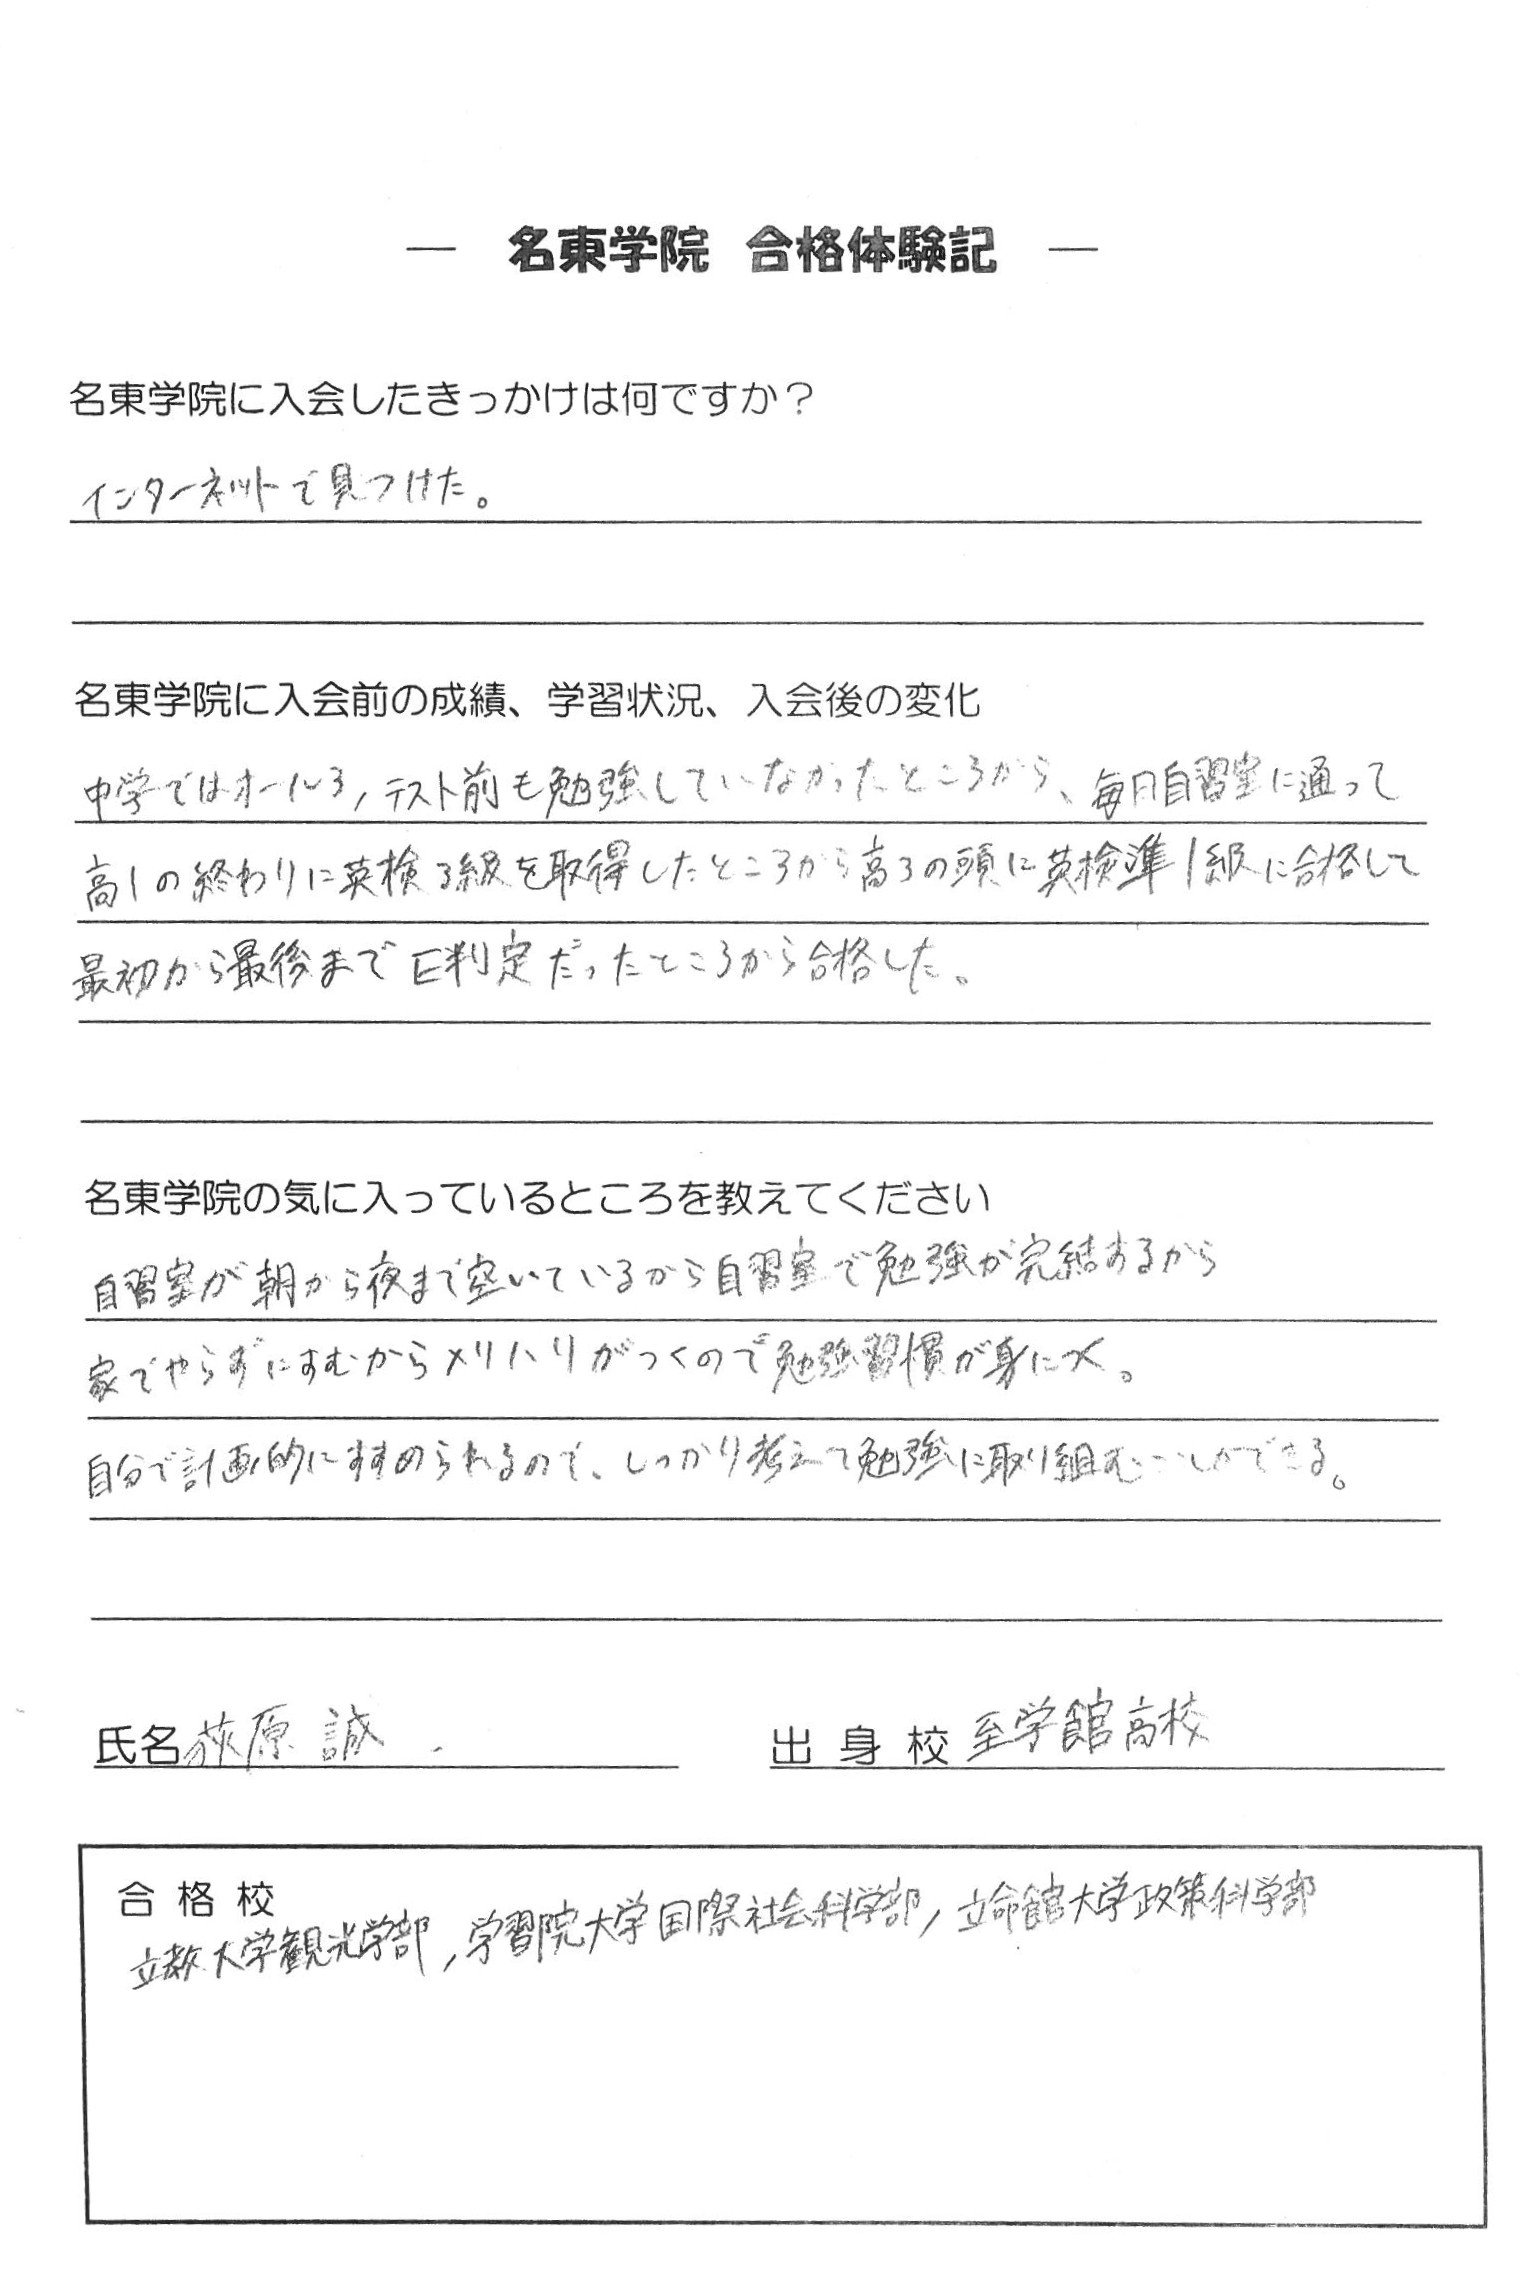 ― 名東学院 合格体験記 ―
名東学院に入会したきっかけは何ですか？
インターネットで見つけた。
名東学院に入会前の成績、学習状況、入会後の変化
中学ではオール3, テスト前も勉強していなかったところから、毎日自習室に通って
高1の終わりに英検3級を取得したところから高3の頭に英検準1級に合格して
最初から最後までE判定だったところから合格した。
名東学院の気に入っているところを教えてください
自習室が朝から夜まで空いているから自習室で勉強が完結するから
家でやらずにすむからメリハリがつくので勉強習慣が身につく。
自分で計画的にすすめられるので、しっかり考えて勉強に取り組むことができる。
氏名 荻原 誠
出身校 至学館高校
合格校
立教大学観光学部, 学習院大学国際社会科学部, 立命館大学政策科学部